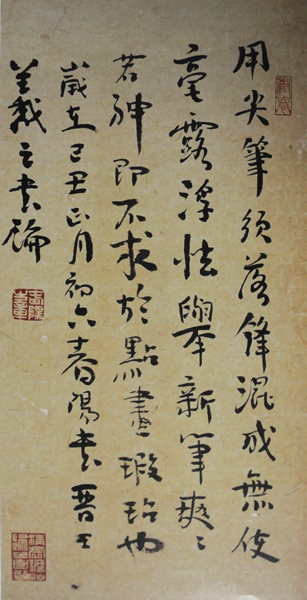 用尖筆須落鋒混成無使
毫露浮怯舉新筆爽〻
若神即不求於點畫瑕玷也
歲在己丑正月初六春陽書晋王
羲之書論